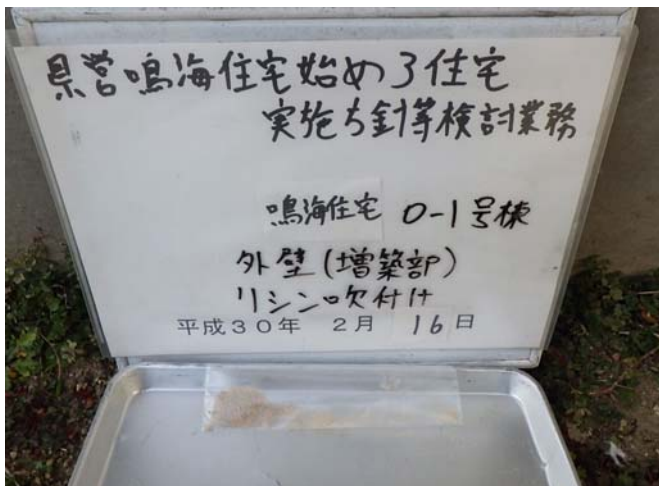 県営鳴海住宅始め3住宅
実施方針等検討業務
鳴海住宅 0-1号棟
外壁(増築部)
リシン吹付け
平成30年 2月 16日